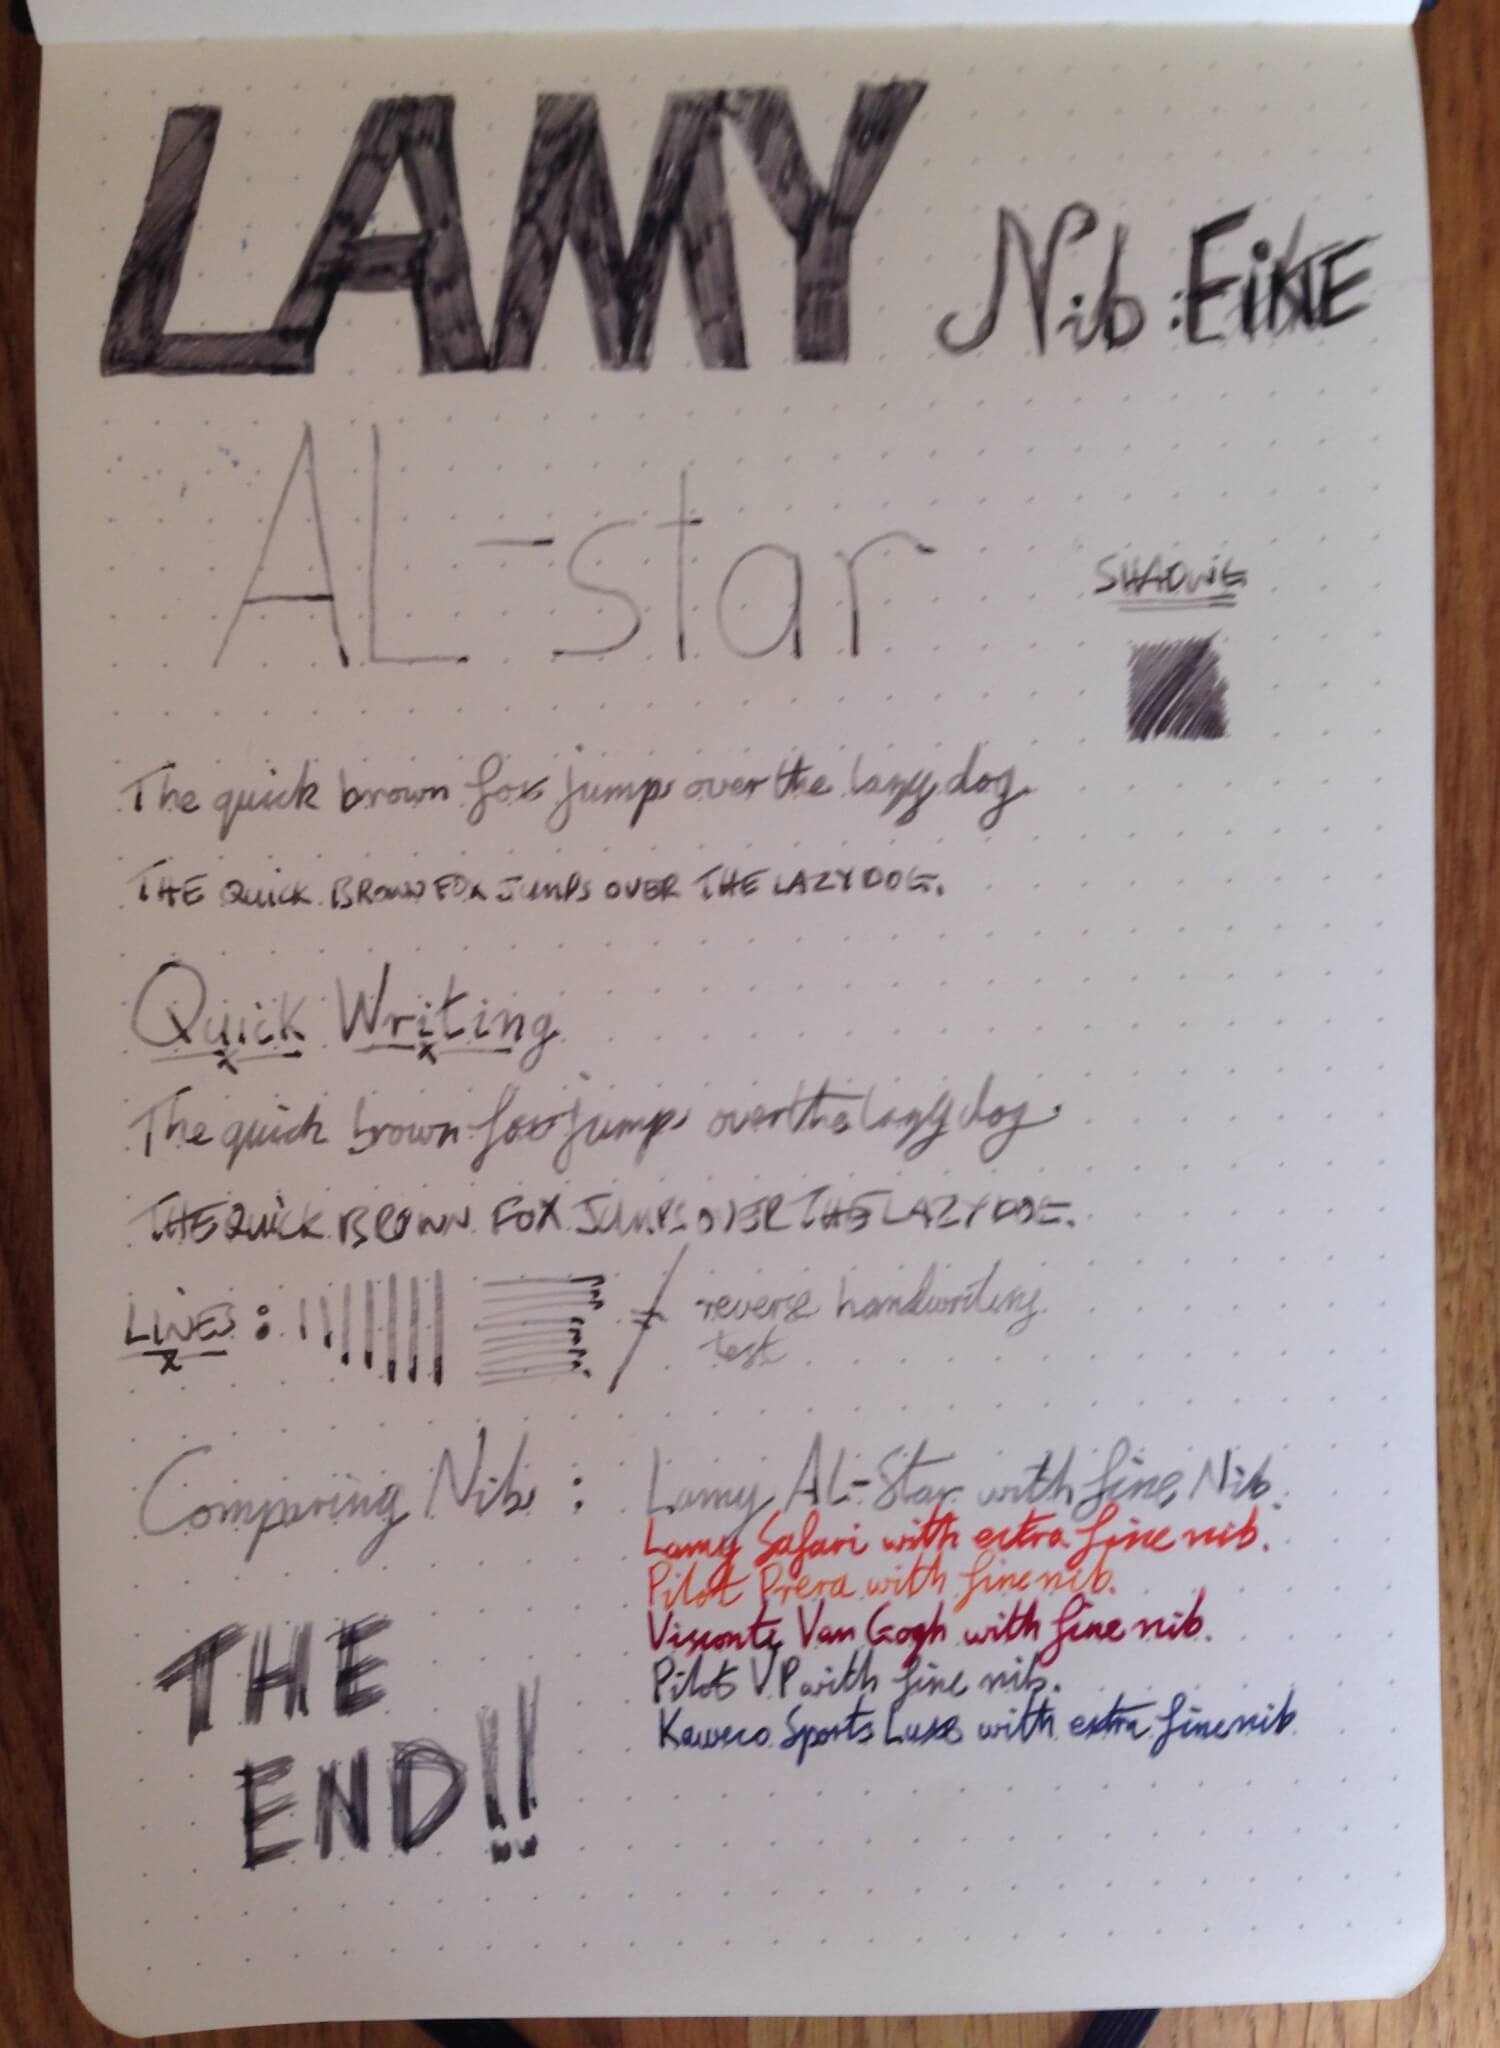 LAMY Nib: FINE
AL-star
SHADING
The quick brown fox jumps over the lazy dog.
THE QUICK BROWN FOX JUMPS OVER THE LAZY DOG.
Quick Writing
The quick brown fox jumps over the lazy dog.
THE QUICK BROWN FOX JUMPS OVER THE LAZY DOG.
LINES: reverse handwriting
test
Comparing Nib: Lamy AL-Star with fine Nib.
Lamy Safari with extra fine nib.
Pilot Prera with fine nib.
Visconti Van Gogh with fine nib.
Pilot VP with fine nib.
Kaweco Sports Luxe with extra fine nib
THE
END!!